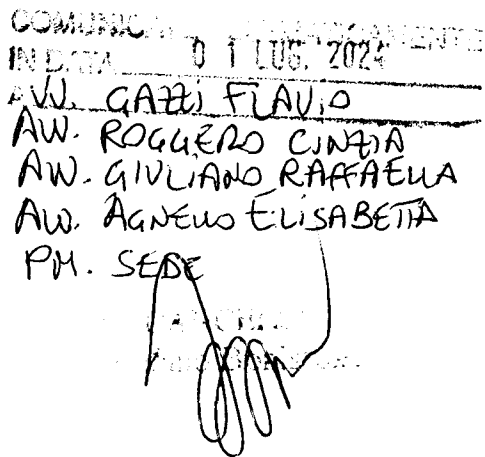 IN DATA 01 LUG. 2024
AVV. GAZZI FLAVIO
AVV. ROGGERO CINZIA
AVV. GIULIANO RAFFAELLA
AVV. AGNELLO ELISABETTA
PM. SEDE